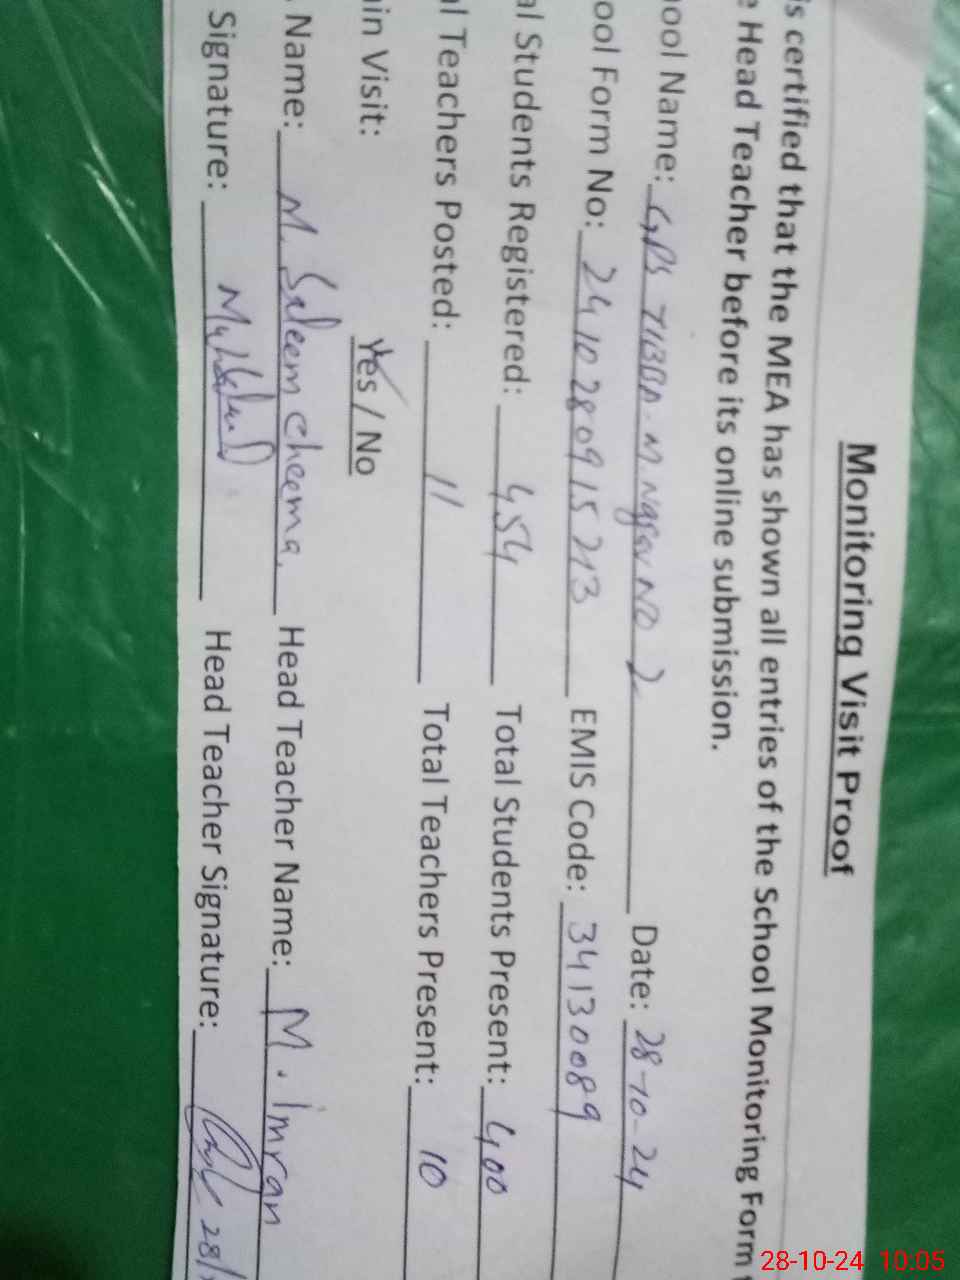 Monitoring Visit Proof
is certified that the MEA has shown all entries of the School Monitoring Form
e Head Teacher before its online submission.
ool Name: GPS TIBBA-M.Nagar NO 2 Date: 28-10-24
ool Form No: 241028091 5213 EMIS Code: 34130089
al Students Registered: 454 Total Students Present: 400
al Teachers Posted: 11 Total Teachers Present: 10
in Visit: Yes / No
Name: M. Saleem Cheema. Head Teacher Name: M. Imran
Signature: Head Teacher Signature: 28/
28-10-24 10:05